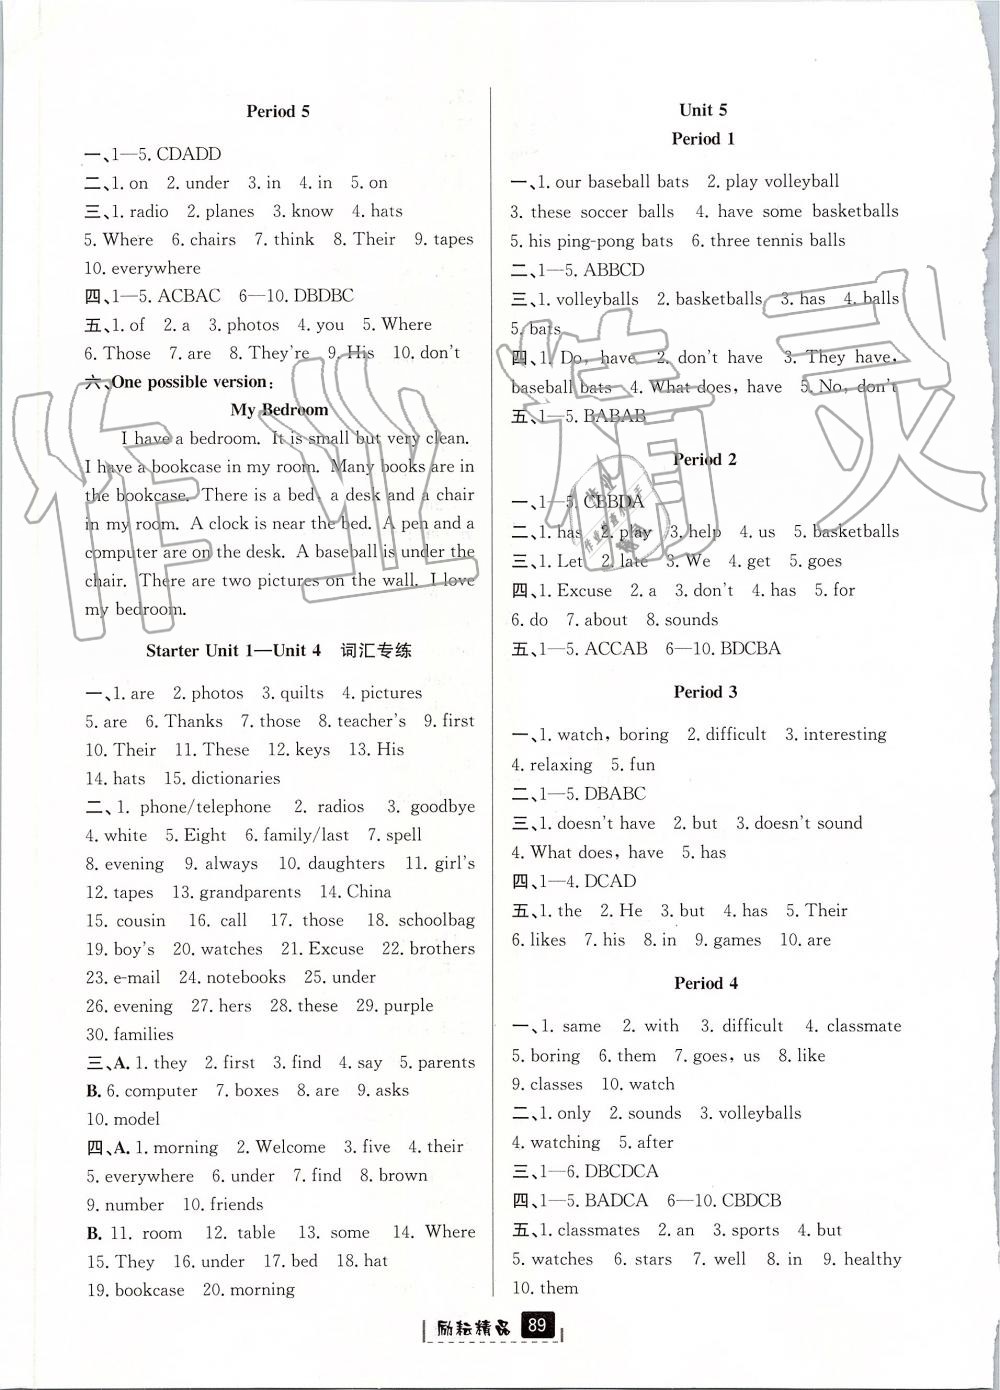 Period 5
一、1—5. CDADD
二、1. on 2. under 3. in 4. in 5. on
三、1. radio 2. planes 3. know 4. hats
5. Where 6. chairs 7. think 8. Their 9. tapes
10. everywhere
四、1—5. ACBAC 6—10. DBDBC
五、1. of 2. a 3. photos 4. you 5. Where
6. Those 7. are 8. They're 9. His 10. don't
六、One possible version:
My Bedroom
I have a bedroom. It is small but very clean.
I have a bookcase in my room. Many books are in
the bookcase. There is a bed, a desk and a chair
in my room. A clock is near the bed. A pen and a
computer are on the desk. A baseball is under the
chair. There are two pictures on the wall. I love
my bedroom.
Starter Unit 1—Unit 4 词汇专练
一、1. are 2. photos 3. quilts 4. pictures
5. are 6. Thanks 7. those 8. teacher's 9. first
10. Their 11. These 12. keys 13. His
14. hats 15. dictionaries
二、1. phone/telephone 2. radios 3. goodbye
4. white 5. Eight 6. family/last 7. spell
8. evening 9. always 10. daughters 11. girl's
12. tapes 13. grandparents 14. China
15. cousin 16. call 17. those 18. schoolbag
19. boy's 20. watches 21. Excuse 22. brothers
23. e-mail 24. notebooks 25. under
26. evening 27. hers 28. these 29. purple
30. families
三、A. 1. they 2. first 3. find 4. say 5. parents
B. 6. computer 7. boxes 8. are 9. asks
10. model
四、A. 1. morning 2. Welcome 3. five 4. their
5. everywhere 6. under 7. find 8. brown
9. number 10. friends
B. 11. room 12. table 13. some 14. Where
15. They 16. under 17. bed 18. hat
19. bookcase 20. morning
Unit 5
Period 1
一、1. our baseball bats 2. play volleyball
3. these soccer balls 4. have some basketballs
5. his ping-pong bats 6. three tennis balls
二、1—5. ABBCD
三、1. volleyballs 2. basketballs 3. has 4. balls
5. bats
四、1. Do, have 2. don't have 3. They have,
baseball bats 4. What does, have 5. No, don't
五、1—5. BABAB
Period 2
一、1—5. CBBDA
二、1. has 2. play 3. help 4. us 5. basketballs
三、1. Let 2. late 3. We 4. get 5. goes
四、1. Excuse 2. a 3. don't 4. has 5. for
6. do 7. about 8. sounds
五、1—5. ACCAB 6—10. BDCBA
Period 3
一、1. watch, boring 2. difficult 3. interesting
4. relaxing 5. fun
二、1—5. DBABC
三、1. doesn't have 2. but 3. doesn't sound
4. What does, have 5. has
四、1—4. DCAD
五、1. the 2. He 3. but 4. has 5. Their
6. likes 7. his 8. in 9. games 10. are
Period 4
一、1. same 2. with 3. difficult 4. classmate
5. boring 6. them 7. goes, us 8. like
9. classes 10. watch
二、1. only 2. sounds 3. volleyballs
4. watching 5. after
三、1—6. DBCDCA
四、1—5. BADCA 6—10. CBDCB
五、1. classmates 2. an 3. sports 4. but
5. watches 6. stars 7. well 8. in 9. healthy
10. them
励耘精品 89
作业精灵